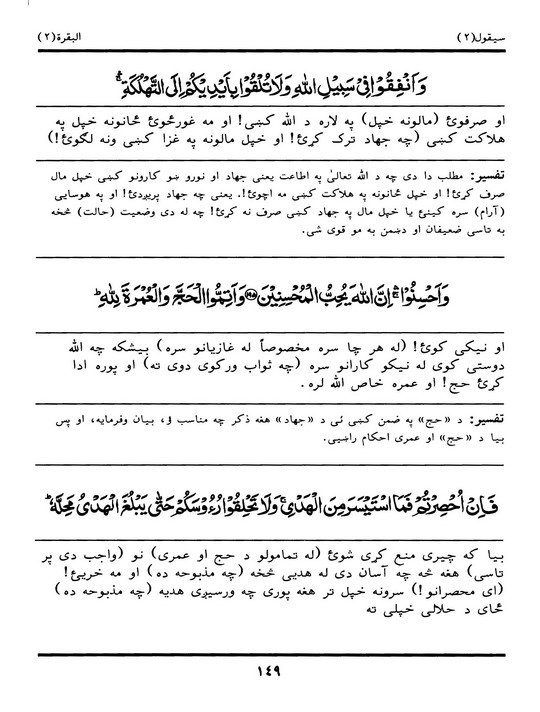 سيقول(٢) البقرة(٢)
وَأَنْفِقُوْا فِيْ سَبِيْلِ اللهِ وَلَا تُلْقُوْا بِأَيْدِيْكُمْ إِلَى التَّهْلُكَةِ ۛ
او صرفوئ (مالونه خپل) په لاره د الله کښی! او مه غورځوئ ځانونه خپل په
هلاکت کښی (چه جهاد ترک کړئ! او خپل مالونه په غزا کښی ونه لگوئ!)
تفسیر: مطلب دا دی چه د الله تعالیٰ په اطاعت یعنی جهاد او نورو ښو کارونو کښی خپل مال
صرف کړئ! او خپل ځانونه په هلاکت کښی مه اچوئ!. یعنی چه جهاد پریږدئ! او په هوسایی
(آرام) سره کینئ یا خپل مال په جهاد کښی صرف نه کړئ! چه له دی وضعیت (حالت) څخه
به تاسی ضعیفان او دښمن به مو قوی شی.
وَأَحْسِنُوْا ۛ إِنَّ اللهَ يُحِبُّ الْمُحْسِنِيْنَ ۝١٩٥ وَأَتِمُّوا الْحَجَّ وَالْعُمْرَةَ لِلّٰهِ ؕ
او نیکی کوئ! (له هر چا سره مخصوصاً له غازیانو سره) بیشکه چه الله
دوستی کوی له نیکو کارانو سره (چه ثواب ورکوی دوی ته) او پوره ادا
کړئ حج! او عمره خاص الله لره.
تفسیر: د «حج» په ضمن کښی ئی د «جهاد» هغه ذکر چه مناسب ؤ، بیان وفرمایه، او پس
بیا د «حج» او عمری احکام راښیی.
فَإِنْ أُحْصِرْتُمْ فَمَا اسْتَيْسَرَ مِنَ الْهَدْيِ ۚ وَلَا تَحْلِقُوْا رُءُوْسَكُمْ حَتّٰى يَبْلُغَ الْهَدْيُ مَحِلَّهٗ ؕ
بیا که چیری منع کړی شوئ (له تمامولو د حج او عمری) نو (واجب دی پر
تاسی) هغه څه چه آسان دی له هدیی څخه (چه مذبوحه ده) او مه خریئ!
(ای محصرانو!) سرونه خپل تر هغه پوری چه ورسیږی هدیه (چه مذبوحه ده)
ځای د حلالی خپلی ته
١٤٩